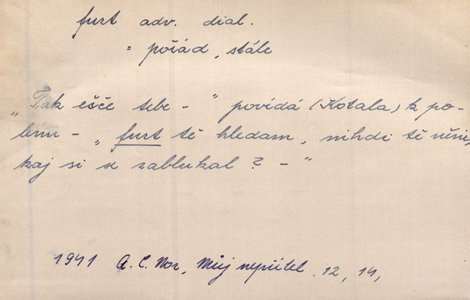 furt adv. dial.
= pořád, stále
„Tak ešče tebe – “ povídá (Kotala) k po-
lenu – „furt tě hledam, nihdi tě něni,
kaj si se zablukal? – “
1941 A. C. Nor, Můj nepřítel, 12, 14,